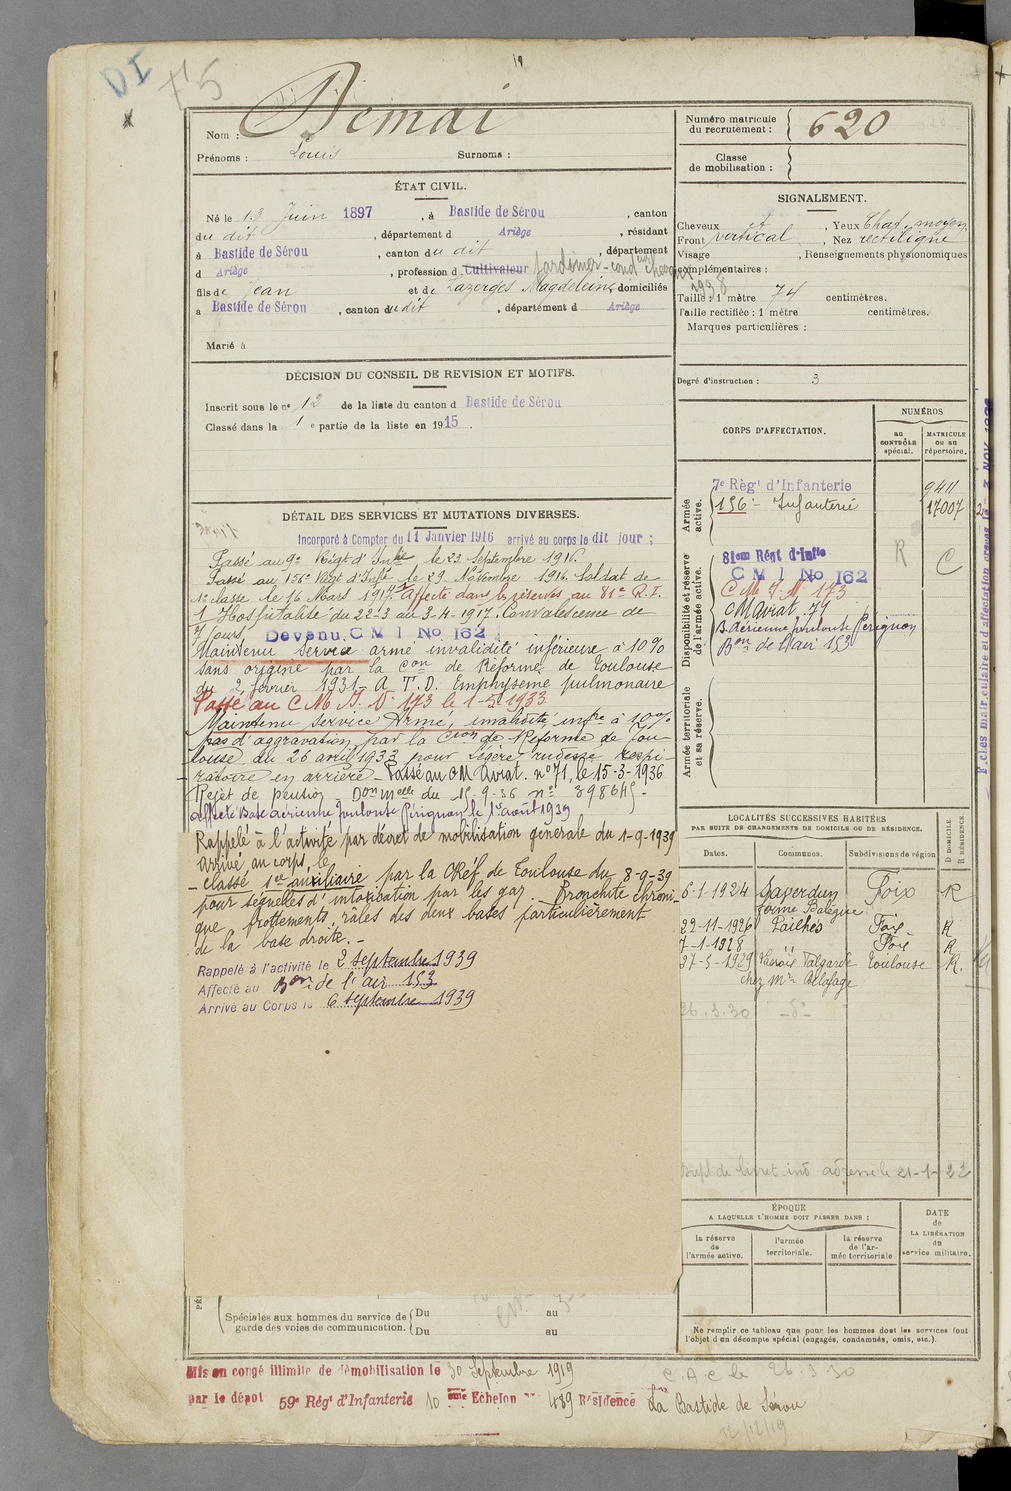 DI
75
Nom : Demai
Prénoms : Louis Surnoms :
Numéro matricule du recrutement : 620
Classe de mobilisation :
ÉTAT CIVIL.
Né le 13 Juin 1897, à Bastide de Sérou, canton
du dit, département d Ariège, résidant
à Bastide de Sérou, canton du dit, département
d Ariège, profession d Cultivateur Jardinier-condeur chevaux
fils de Jean et de Lazerges Magdeleine, domiciliés
à Bastide de Sérou, canton du dit, département d Ariège
Marié à
SIGNALEMENT.
Cheveux et, Yeux Chat. moyen
Front vertical, Nez rectiligne
Visage, Renseignements physionomiques
complémentaires :
Taille : 1 mètre 74 centimètres.
Taille rectifiée : 1 mètre centimètres.
Marques particulières :
Degré d'instruction : 3
DÉCISION DU CONSEIL DE REVISION ET MOTIFS.
Inscrit sous le n° 12 de la liste du canton d Bastide de Sérou
Classé dans la 1e partie de la liste en 1915.
DÉTAIL DES SERVICES ET MUTATIONS DIVERSES.
Incorporé à Compter du 11 Janvier 1916 arrivé au corps le dit jour ;
Passé au 9e Régt d'Infie le 23 Septembre 1916.
Passé au 156e Régt d'Infie le 29 Novembre 1916. Soldat de
1e classe le 16 Mars 1917. Affecté dans la réserve au 81e R.I.
1 Hospitalisé du 22-3 au 3-4-1917. Convalescence de
7 jours. Devenu C M I No 162
Maintenu service armé invalidité inférieure à 10%
sans origine par la Con de Réforme de Toulouse
du 2 février 1931 - A T.D. Emphysème pulmonaire
Passé au C M I. N° 173 le 1-5-1933
Maintenu service Armé, invalidité infre à 10%
pas d'aggravation, par la Cion de Réforme de Tou-
louse du 26 avril 1933 pour Légère rudesse respi-
ratoire en arrière - Passé au CM Aviat. n° 71, le 15-3-1936
Rejet de pension - Don melle du 15-9-36 n° 898645 -
affecté Base aérienne Toulouse Pérignon le 1er août 1939
Rappelé à l'activité par décret de mobilisation générale du 1-9-1939
Arrivé au corps le
- classé sce auxiliaire par la CRéf de Toulouse du 8-9-39
pour séquelles d'intoxication par les gaz. Bronchite chroni-
que frottements, râles des deux bases particulièrement
de la base droite. -
Rappelé à l'activité le 2 septembre 1939
Affecté au Bon de l'air 153
Arrivé au Corps le 6 septembre 1939
CORPS D'AFFECTATION.
NUMÉROS
au CONTRÔLE spécial.
MATRICULE ou au répertoire.
Armée active.
7e Régt d'Infanterie 9411
156e Infanterie 17007
Disponibilité et réserve de l'armée active.
81em Régt d'Infie
C M I No 162
C M I. N. 173
C M Aviat. 71
B. Aérienne Toulouse Pérignon
Bon de l'air 153
R C
Armée territoriale et sa réserve.
LOCALITÉS SUCCESSIVES HABITÉES
PAR SUITE DE CHANGEMENTS DE DOMICILE OU DE RÉSIDENCE.
Dates. Communes. Subdivisions de région D DOMICILE. R RÉSIDENCE.
6-1-1924 Saverdun Foix R
ferme Balègue
22-11-1926 Pailhès Foix R
7-1-1928 " Foix R
27-5-1929 Toulouse R.
chez Mr Delafage
26.3.30 -d°-
21-1-22
ÉPOQUE
A LAQUELLE L'HOMME DOIT PASSER DANS :
la réserve de l'armée active.
l'armée territoriale.
la réserve de l'armée territoriale
DATE de LA LIBÉRATION du service militaire.
Spéciales aux hommes du service de garde des voies de communication.
Du au
Du au
Ne remplir ce tableau que pour les hommes dont les services font
l'objet d'un décompte spécial (engagés, condamnés, omis, etc.).
Mis en congé illimité de démobilisation le 30 Septembre 1919
par le dépôt 59e Rég' d'Infanterie 10 ème Echelon n° 489 Résidence La Bastide de Sérou
C.A.C le 26.3.30
12/12/19